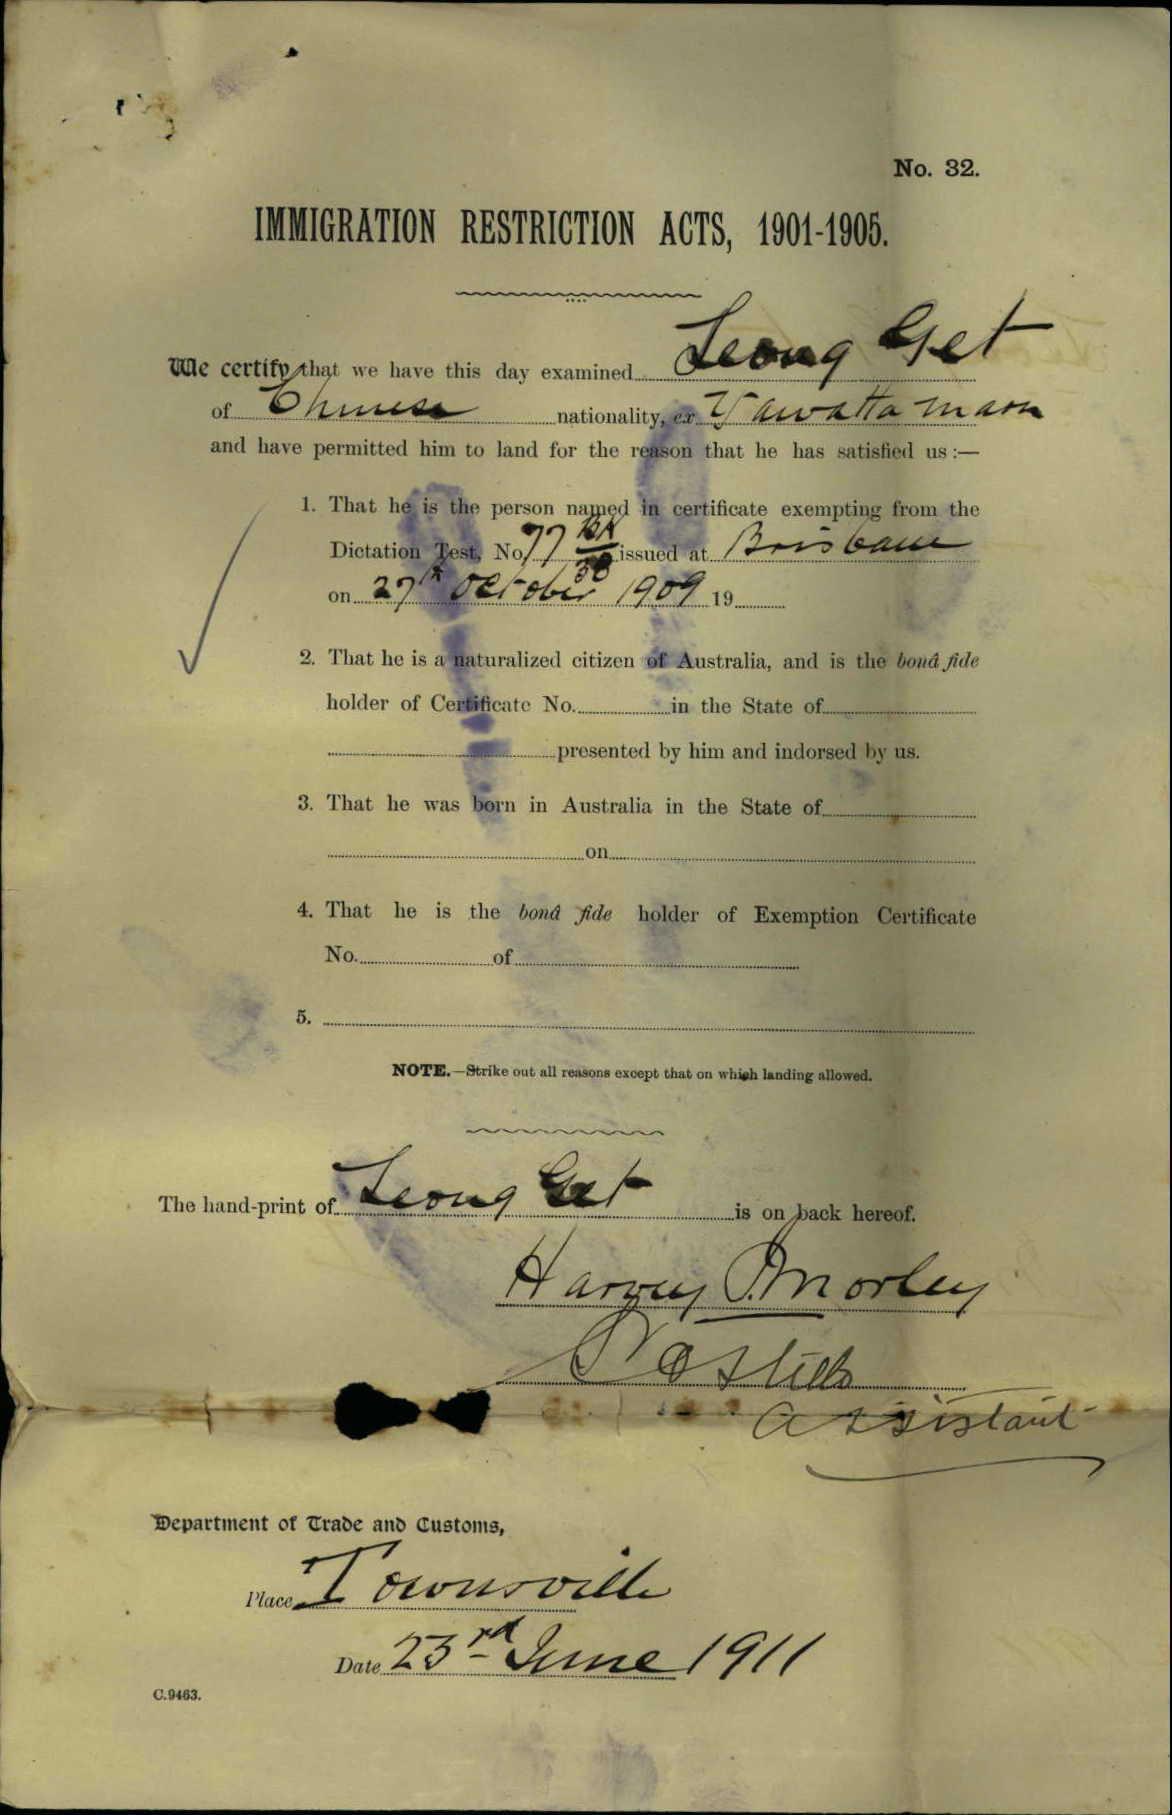 No. 32.
IMMIGRATION RESTRICTION ACTS, 1901-1905.
We certify that we have this day examined Leong Get
of Chinese nationality, ex Yawata Maru
and have permitted him to land for the reason that he has satisfied us :—
1. That he is the person named in certificate exempting from the
Dictation Test, No. 77 BK/38 issued at Brisbane
on 27th October 1909 19
2. That he is a naturalized citizen of Australia, and is the bonâ fide
holder of Certificate No. in the State of
presented by him and indorsed by us.
3. That he was born in Australia in the State of
on
4. That he is the bonâ fide holder of Exemption Certificate
No. of
5.
NOTE.—Strike out all reasons except that on which landing allowed.
The hand-print of Leong Get is on back hereof.
Harvey P. Morley
Assistant
Department of Trade and Customs,
Place Townsville
Date 23rd June 1911
C.9463.